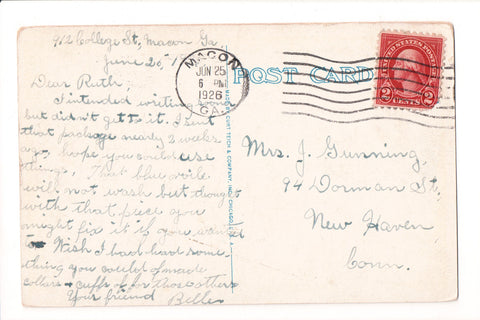 912 College St, Macon Ga.
June 20,
Dear Ruth;
Intended writing
but didn't get to it. I sent
that package nearly 3 weeks
ago, hope you could use
things. That blue voile
will not wash but thought
with that piece you
might fix it if you wanted
to. Wish I had had some-
thing you could of made
collars & cuffs of for those others
Your friend
Belle
MACON
JUN 25
6 PM
1926
GA.
POST CARD
UNITED STATES POSTAGE
2 CENTS 2
Mrs. J. Gunning,
94 Dorman St,
New Haven
Conn.